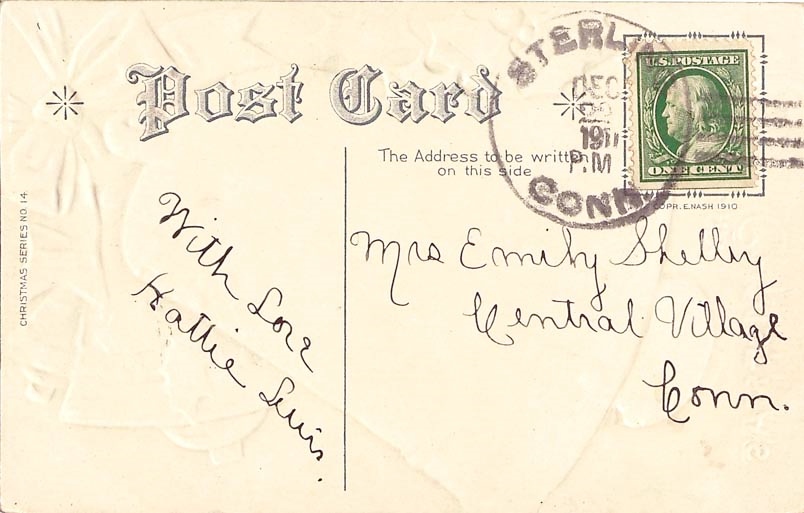 Post Card
CHRISTMAS SERIES NO. 14.
The Address to be written
on this side
STERLIN
DEC
191
P.M
CONN.
U.S. POSTAGE
ONE CENT
COPR. E. NASH 1910
With Love
Hattie Lewis.
Mrs Emily Shelley
Central Village
Conn.